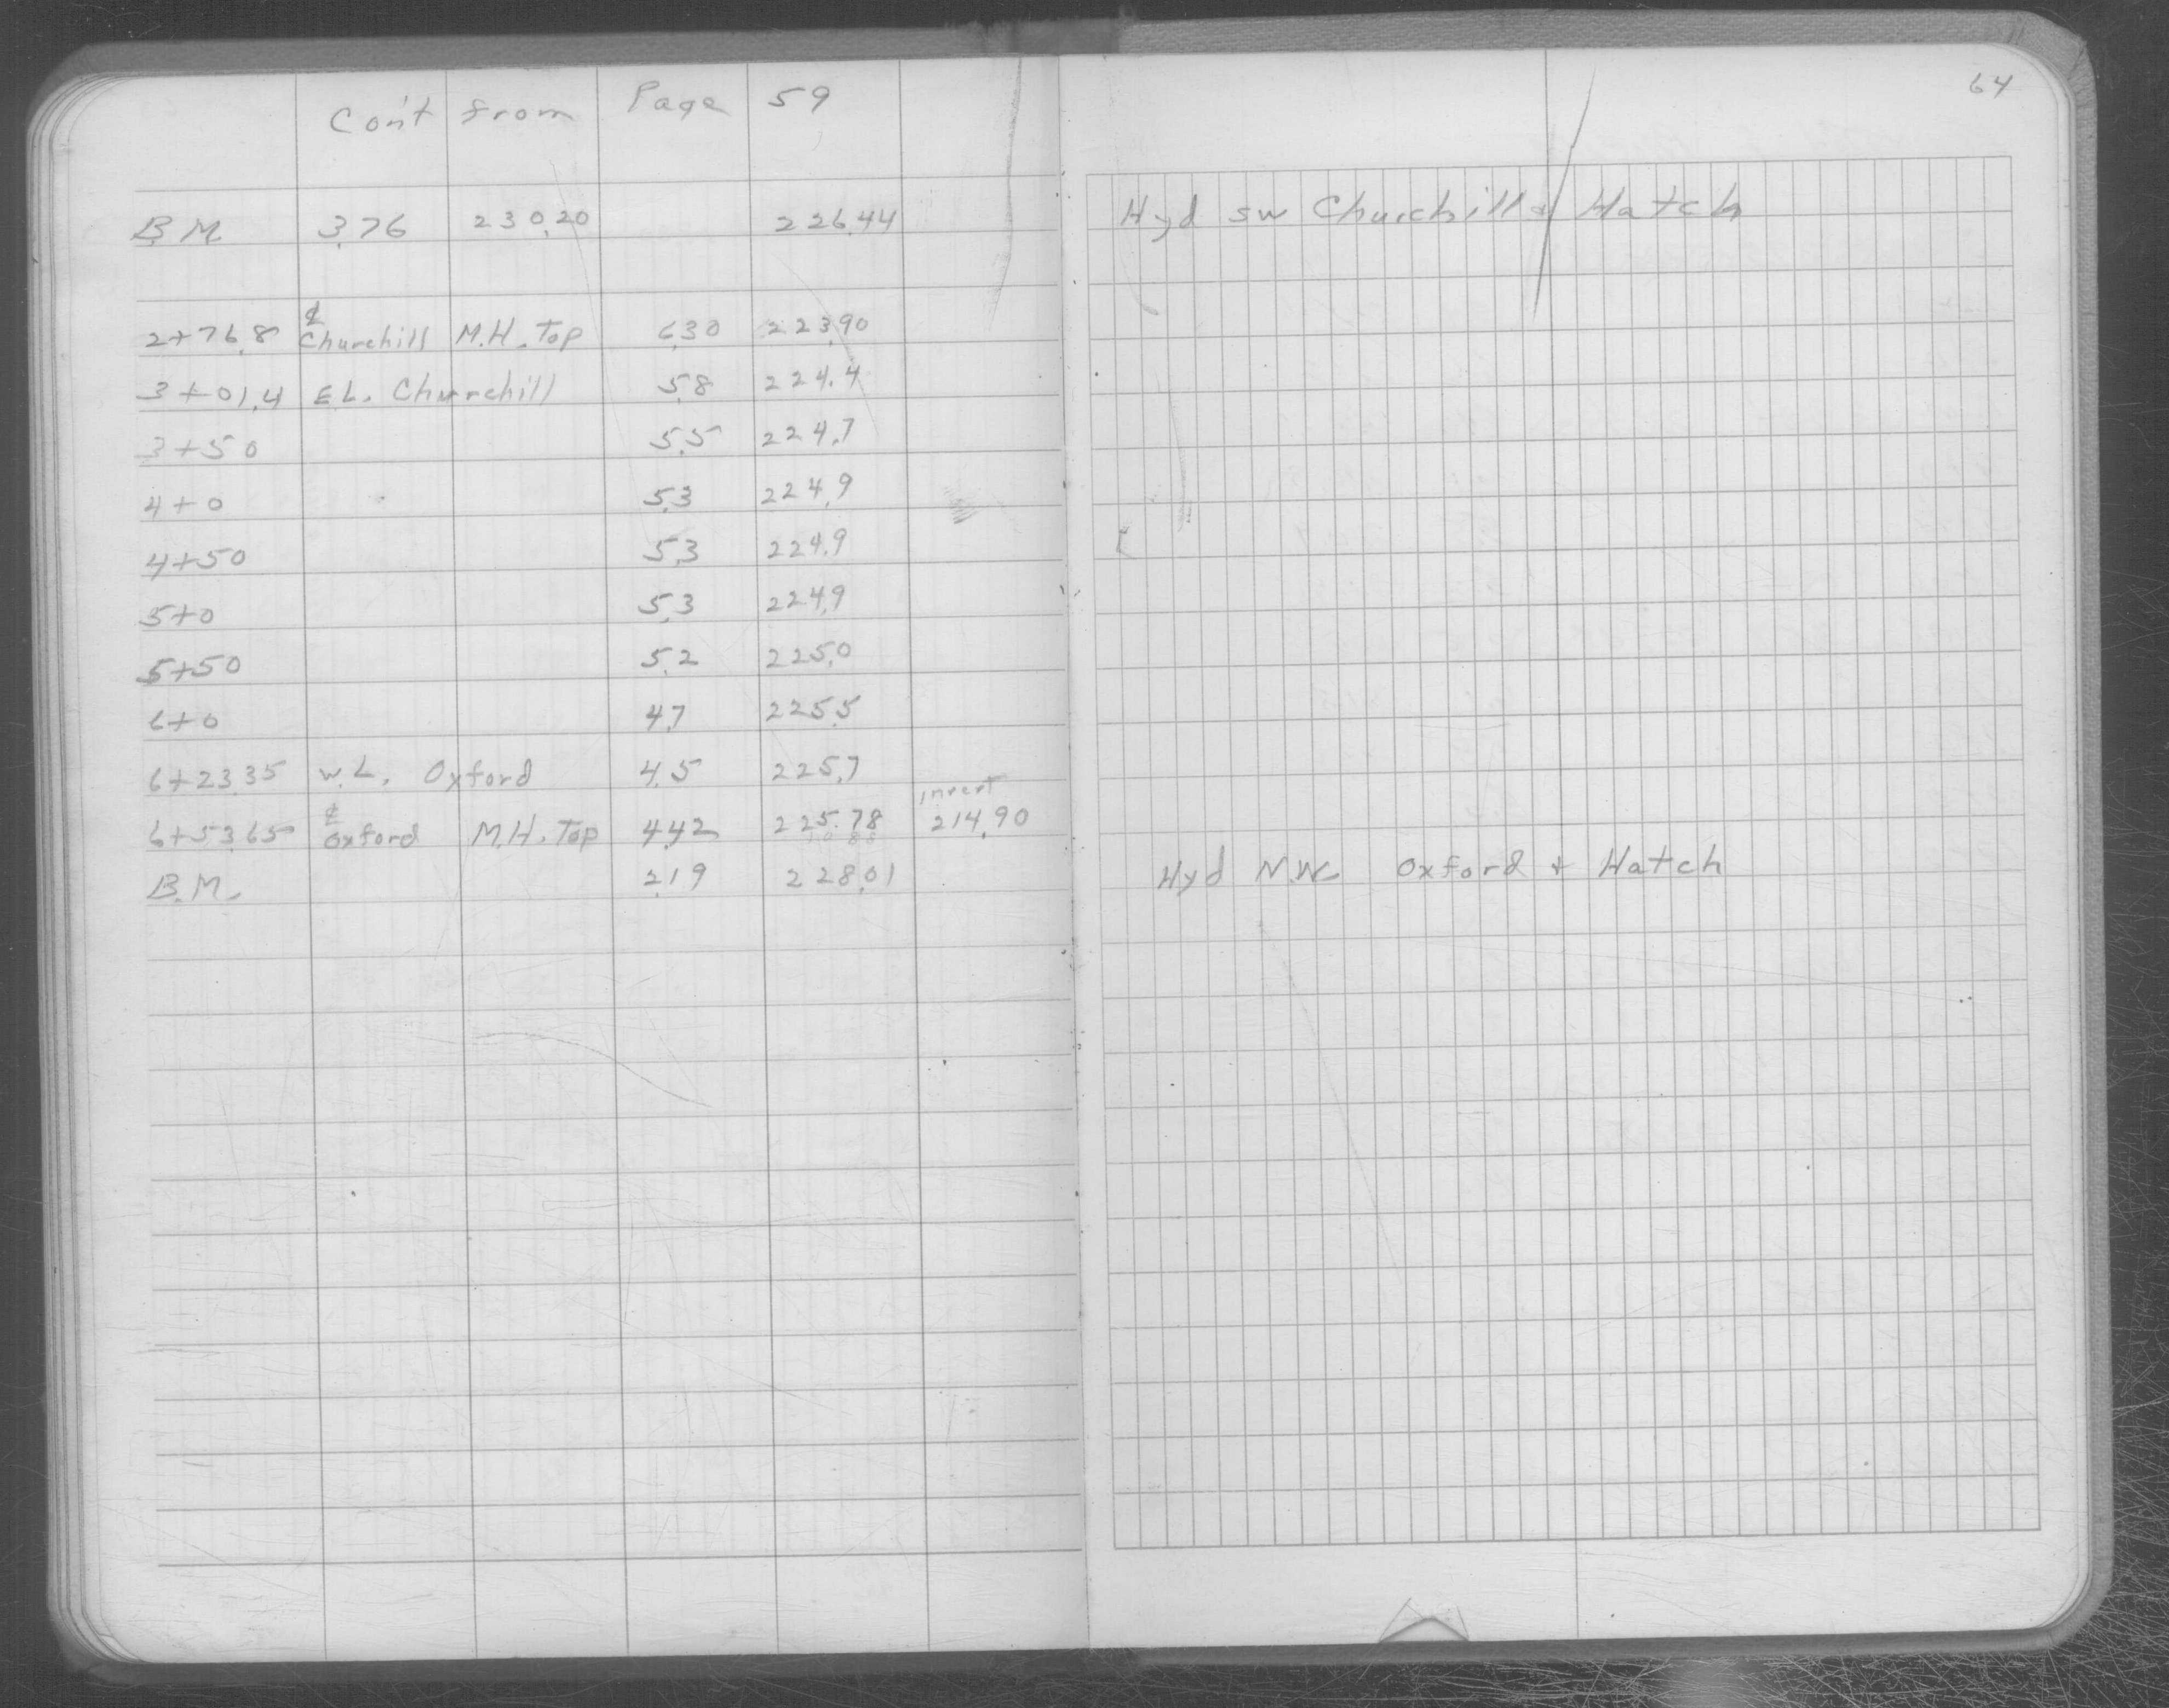 Con't from Page 59
64
B.M. 3.76 230.20 226.44 Hyd SW Churchill & Hatch
2+76.8 ℄ Churchill M.H. Top 6.30 223.90
3+01.4 E.L. Churchill 5.8 224.4
3+50 5.5 224.7
4+0 5.3 224.9
4+50 5.3 224.9
5+0 5.3 224.9
5+50 5.2 225.0
6+0 4.7 225.5
6+23.35 W.L. Oxford 4.5 225.7
6+53.65 ℄ Oxford M.H. Top 4.42 225.78 invert 214.90
B.M. 2.19 228.01 Hyd N.W. Oxford & Hatch